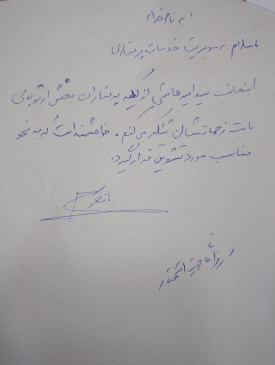 به نام خدا
با سلام به مدیریت خدمات پرستاری
اینجانب سید امیر هاشمی از کلیه پرستاران بخش ارتوپدی
بابت زحماتشان تشکر می کنم. خواهشمند است که به نحو
مناسب مورد تشویق قرار گیرد.
با تشکر